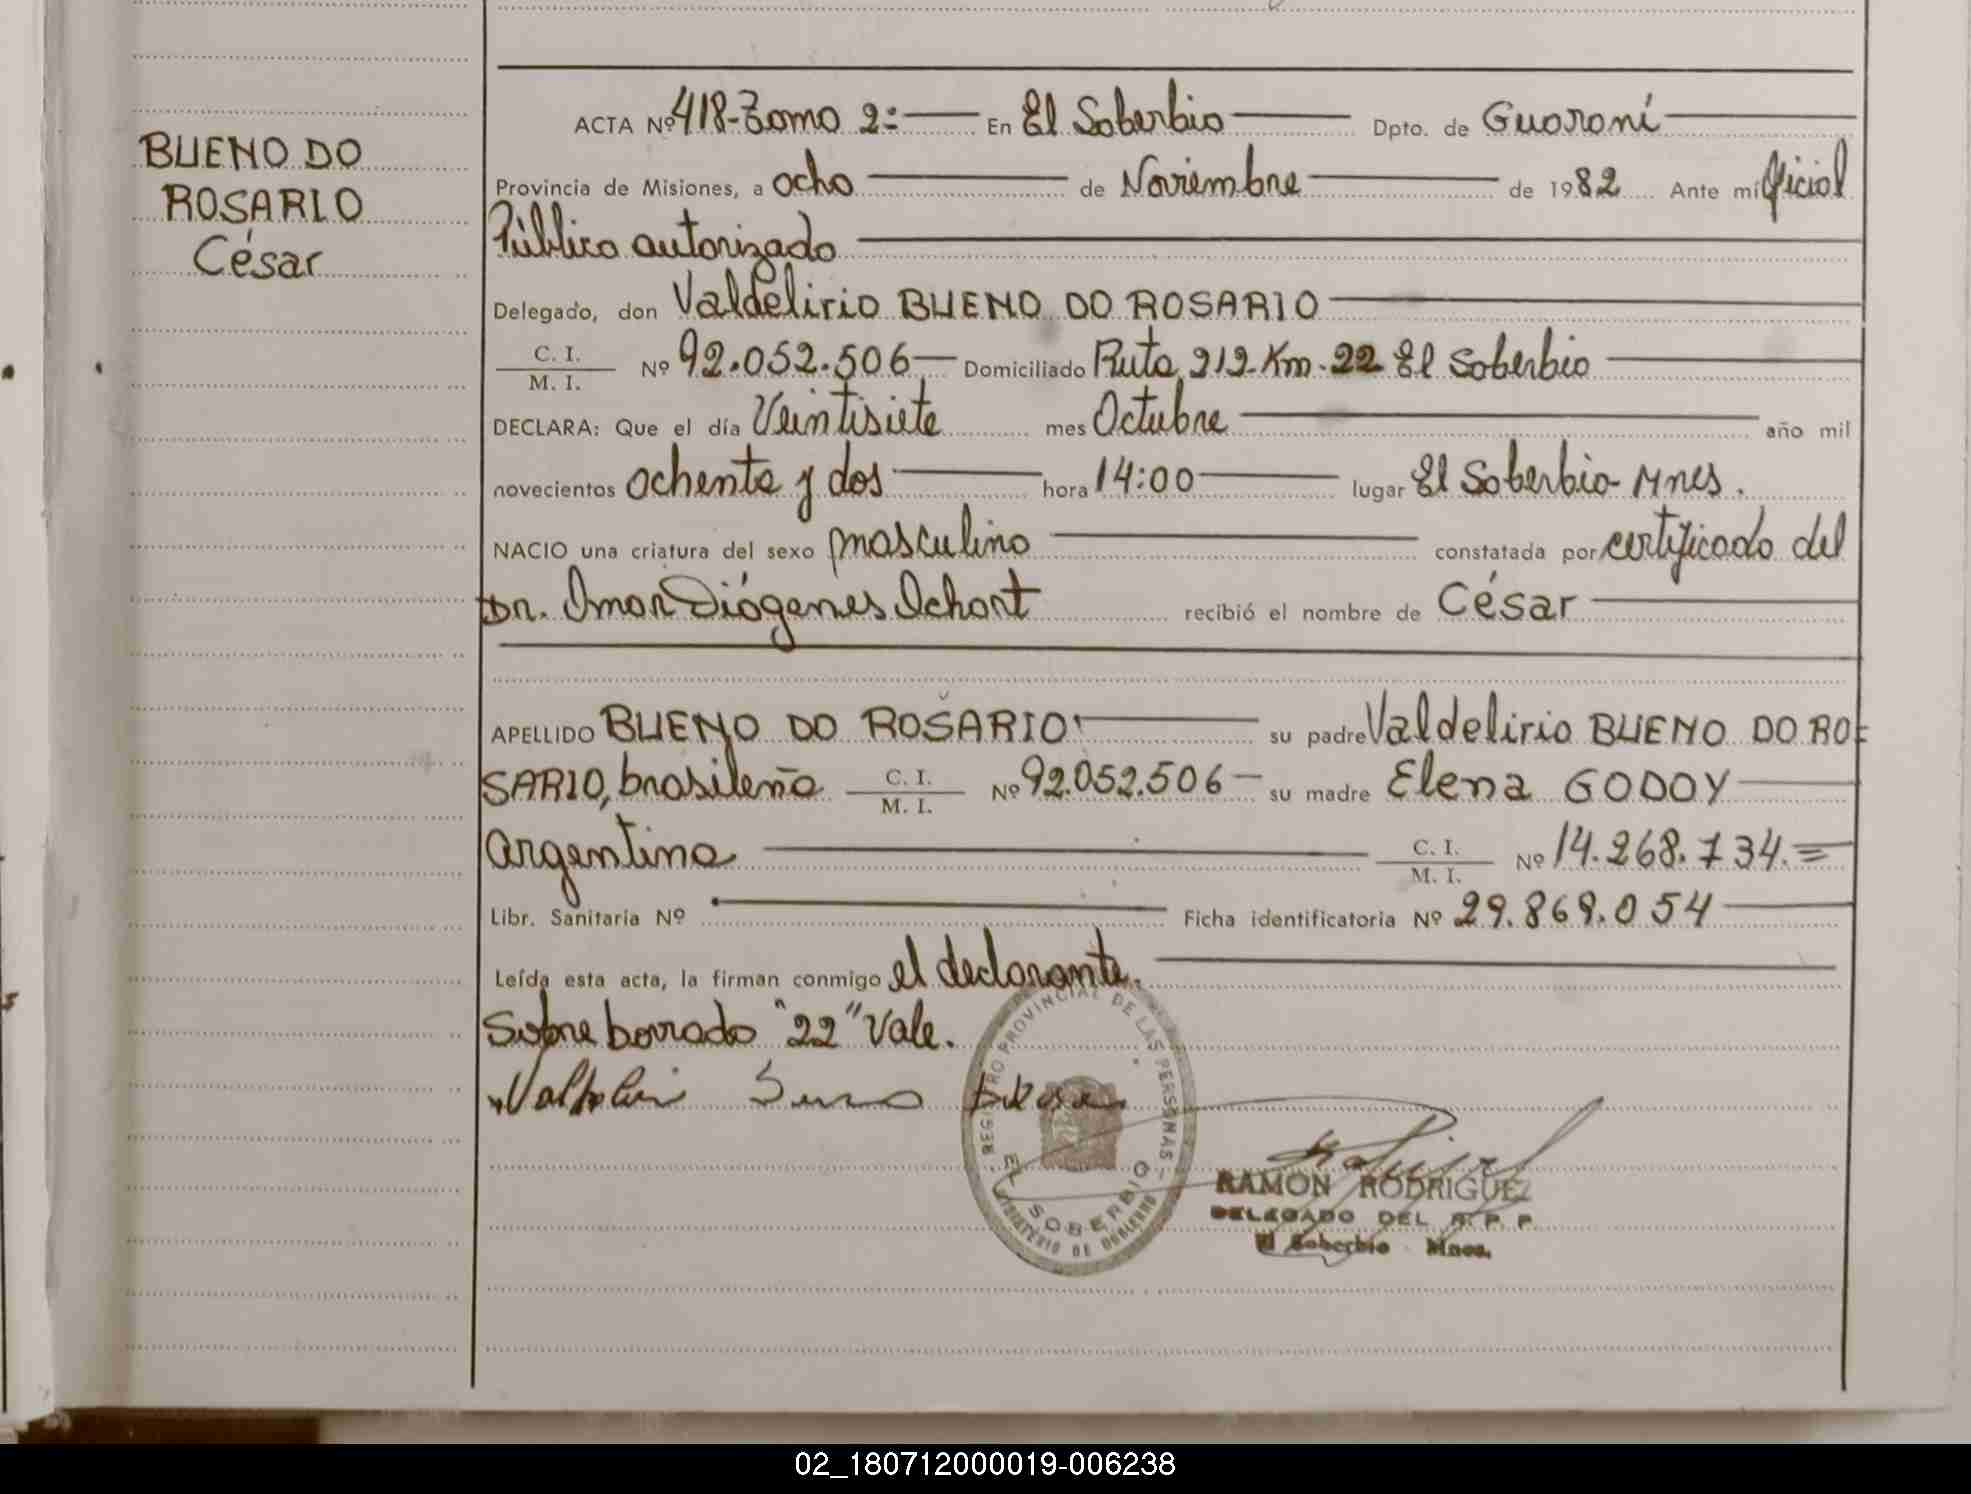 BUENO DO
ROSARIO
César
ACTA Nº 418-Tomo 2= En El Soberbio Dpto. de Guaraní
Provincia de Misiones, a ocho de Noviembre de 1982 Ante mí Oficial
Público autorizado
Delegado, don Valdelirio BUENO DO ROSARIO
C. I. / M. I. Nº 92.052.506 Domiciliado Ruta 212 Km. 22 El Soberbio
DECLARA: Que el día Veintisiete mes Octubre año mil
novecientos ochenta y dos hora 14:00 lugar El Soberbio-Mnes.
NACIO una criatura del sexo masculino constatada por certificado del
Dr. Omar Diógenes Ichart recibió el nombre de César
APELLIDO BUENO DO ROSARIO su padre Valdelirio BUENO DO RO=
SARIO, brasileño C. I. / M. I. Nº 92.052.506 su madre Elena GODOY
argentina C. I. / M. I. Nº 14.268.734.=
Libr. Sanitaria Nº Ficha identificatoria Nº 29.869.054
Leída esta acta, la firman conmigo el declarante.
Sobre borrado "22" Vale.
REGISTRO PROVINCIAL DE LAS PERSONAS
EL SOBERBIO
MINISTERIO DE GOBIERNO
RAMON RODRIGUEZ
DELEGADO DEL R. P. P.
El Soberbio - Mnes.
02_180712000019-006238